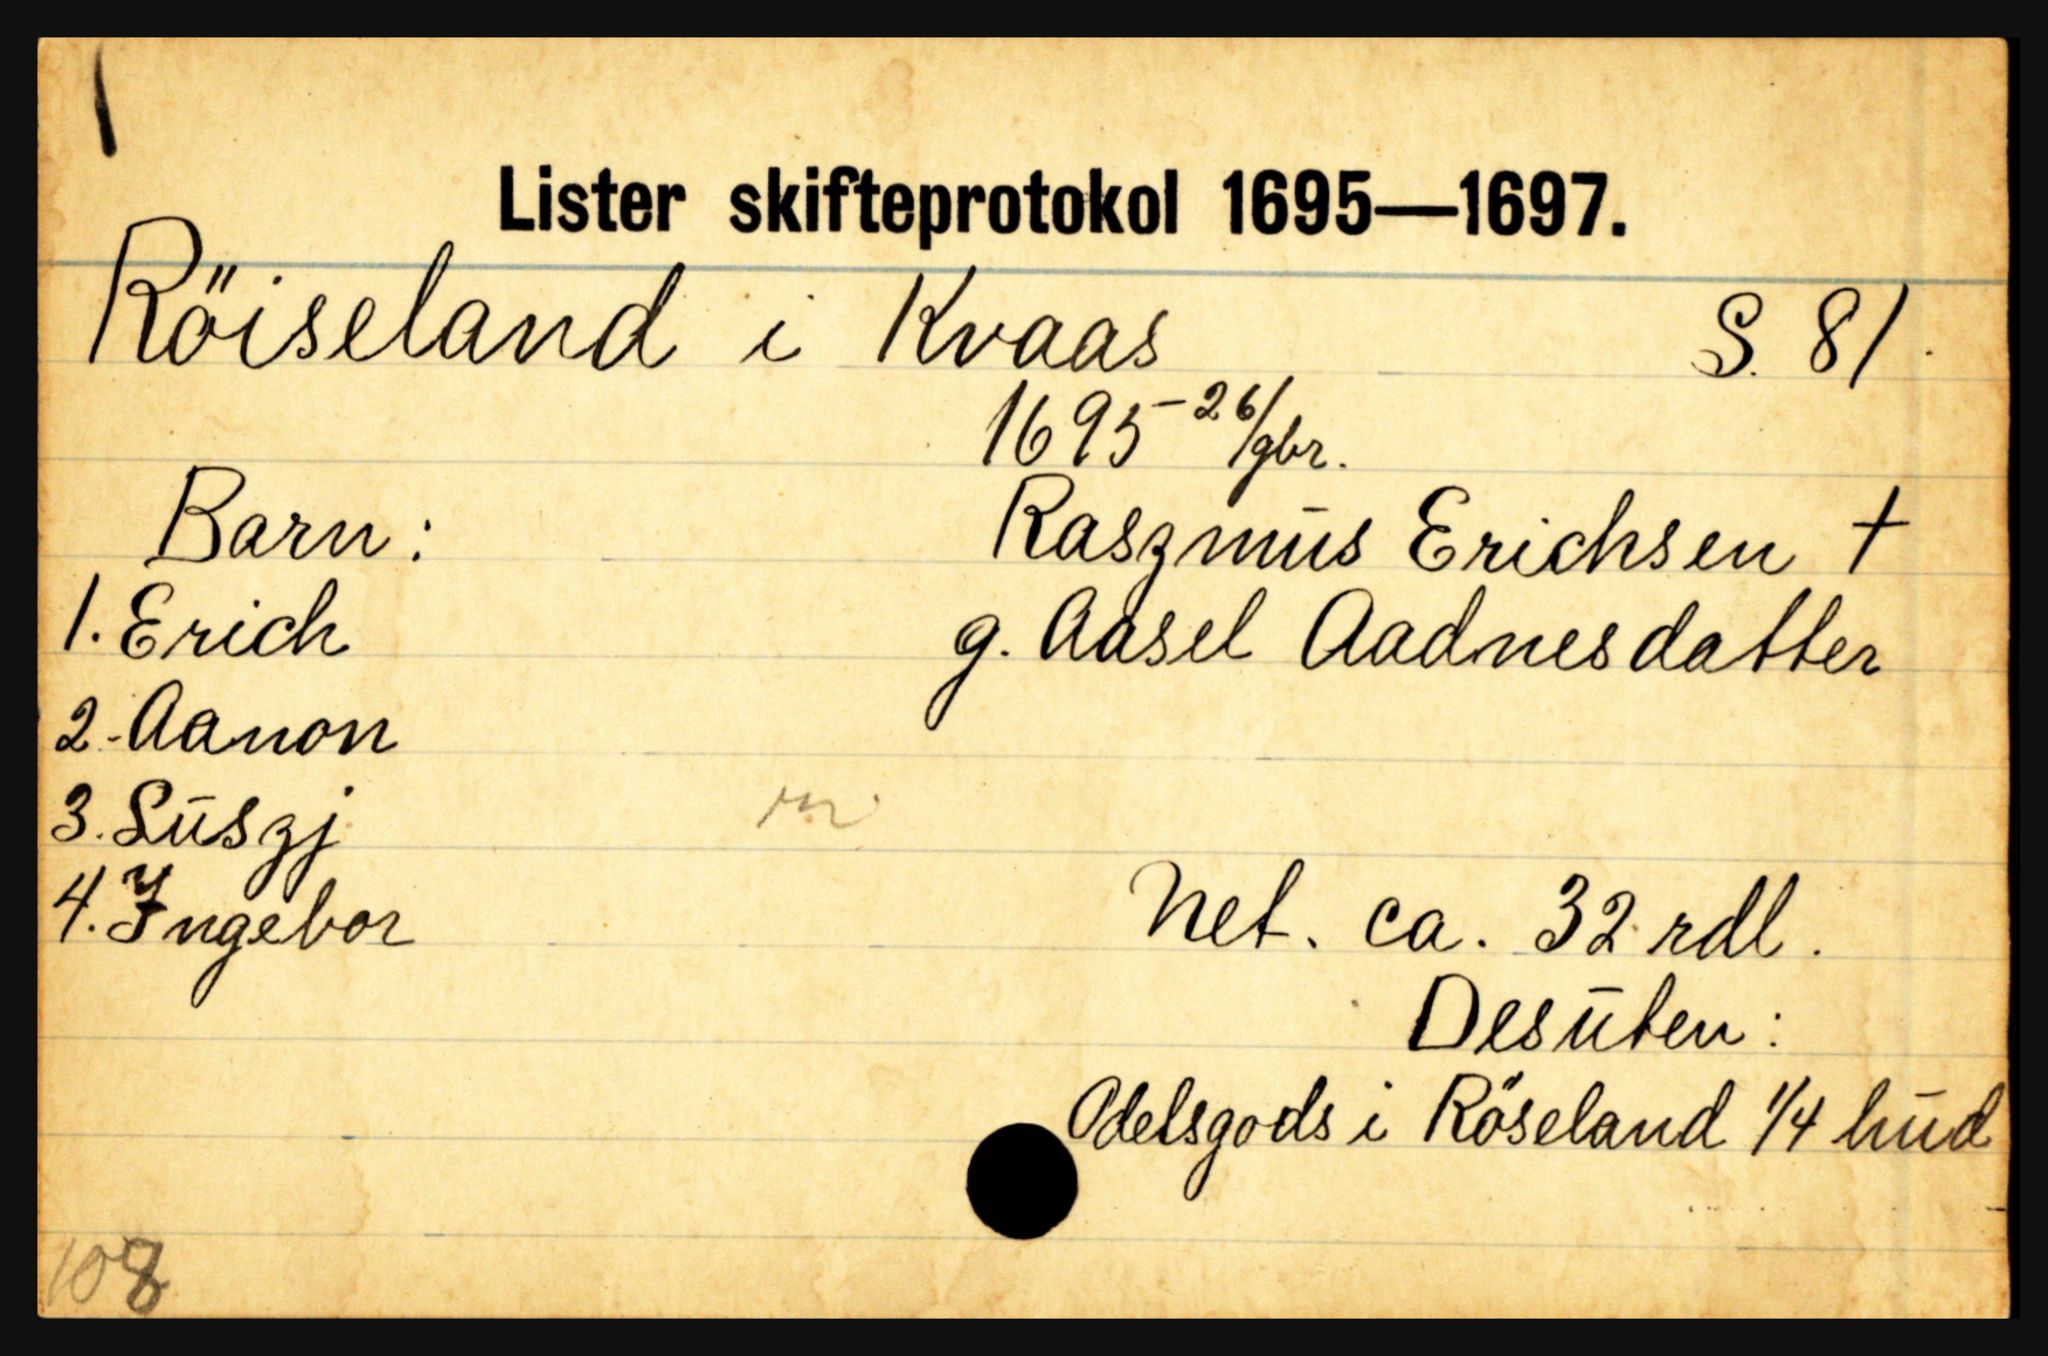 Lister skifteprotokol 1695—1697.
Röiseland i Kvaas S. 81.
1695 - 26/9br.
Barn: Raszmus Erichsen †
1. Erich g. Aasel Aadnesdatter
2. Aanon
3. Suszj
4. Ingebor Net. ca. 32 rdl.
Desuten:
Odelsgods i Röseland 1/4 hud
108